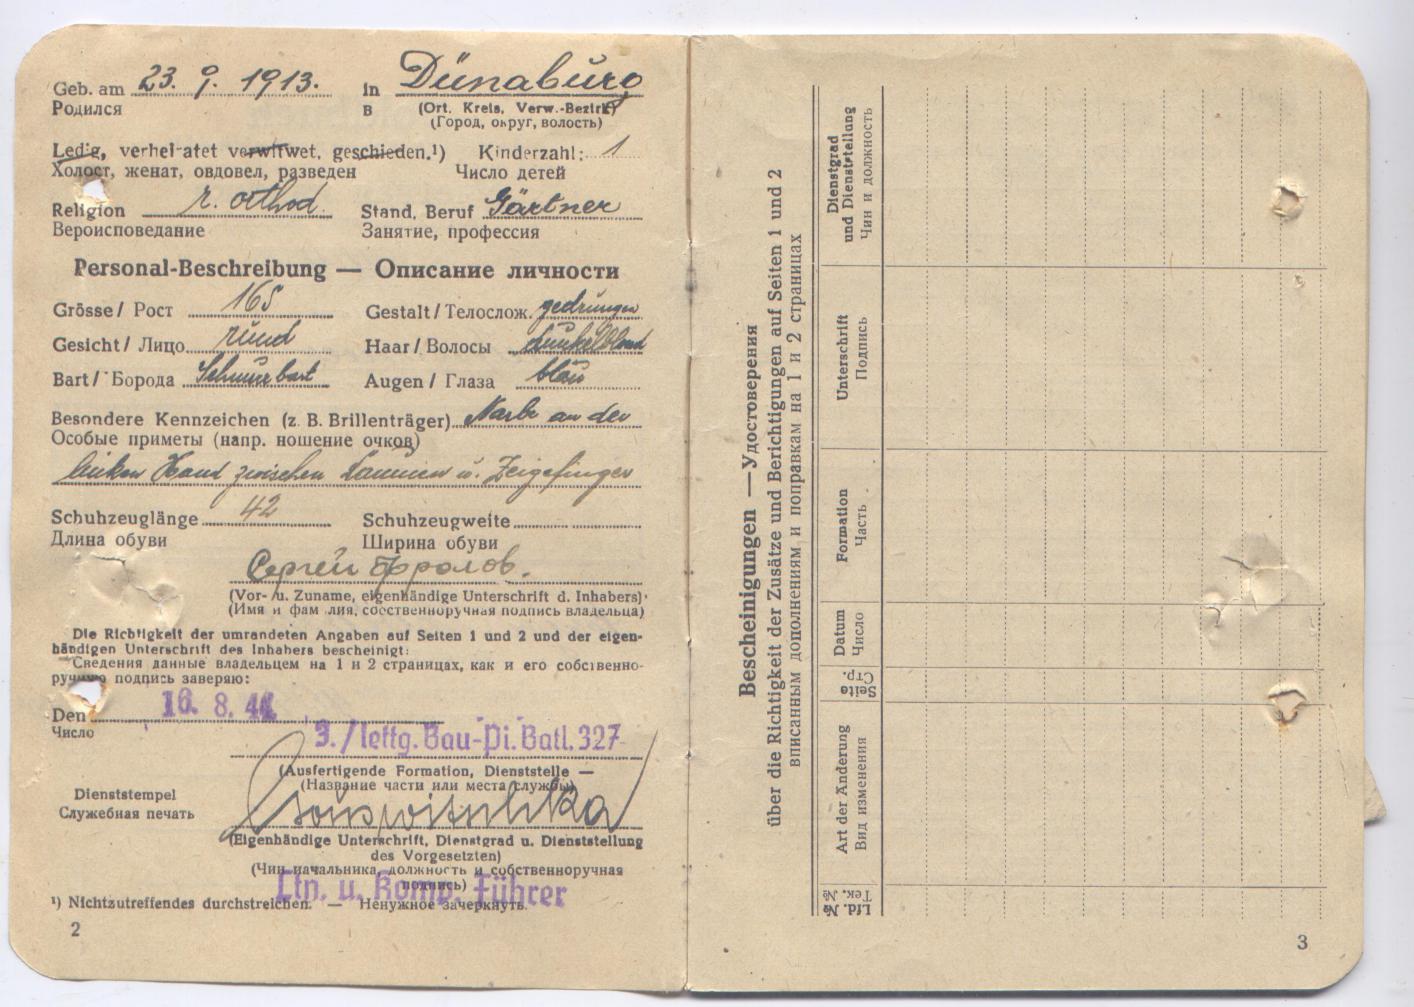 Geb. am 23. 9. 1913. in Dünaburg
Родился в (Ort, Kreis, Verw.-Bezirk)
(Город, округ, волость)
Ledig, verheiratet verwitwet, geschieden.¹) Kinderzahl: 1
Холост, женат, овдовел, разведен Число детей
Religion r. orthod. Stand, Beruf Gärtner
Вероисповедание Занятие, профессия
Personal-Beschreibung — Описание личности
Grösse / Рост 165 Gestalt / Телослож. gedrungen
Gesicht / Лицо rund Haar / Волосы dunkelblond
Bart / Борода Schnurrbart Augen / Глаза blau
Besondere Kennzeichen (z. B. Brillenträger) Narbe an der
Особые приметы (напр. ношение очков)
linken Hand zwischen Daumen u. Zeigefinger
Schuhzeuglänge 42 Schuhzeugweite
Длина обуви Ширина обуви
Сергей Фролов.
(Vor- u. Zuname, eigenhändige Unterschrift d. Inhabers)
(Имя и фам лия, собственноручная подпись владельца)
Die Richtigkeit der umrandeten Angaben auf Seiten 1 und 2 und der eigen-
händigen Unterschrift des Inhabers bescheinigt:
Сведения данные владельцем на 1 и 2 страницах, как и его собственно-
ручную подпись заверяю:
Den 16. 8. 44.
Число
3./lettg. Bau-Pi. Batl. 327
(Ausfertigende Formation, Dienststelle —
(Название части или места службы)
Dienststempel
Служебная печать
(Eigenhändige Unterschrift, Dienstgrad u. Dienststellung
des Vorgesetzten)
(Чин начальника, должность и собственноручная
подпись)
Ltn. u. Komp. Führer
¹) Nichtzutreffendes durchstreichen. — Ненужное зачеркнуть.
2
Bescheinigungen — Удостоверения
über die Richtigkeit der Zusätze und Berichtigungen auf Seiten 1 und 2
вписанным дополнениям и поправкам на 1 и 2 страницах
Lfd. №
Тек. №
Art der Änderung
Вид изменения
Seite
Стр.
Datum
Число
Formation
Часть
Unterschrift
Подпись
Dienstgrad
und Dienststellung
Чин и должность
3